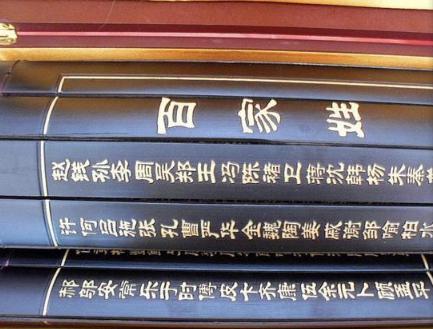 百家姓
赵钱孙李周吴郑王冯陈褚卫蒋沈韩杨朱秦
许何吕施张孔曹严华金魏陶姜戚谢邹喻柏水
郝邬安常乐于时傅皮卞齐康伍余元卜顾孟平